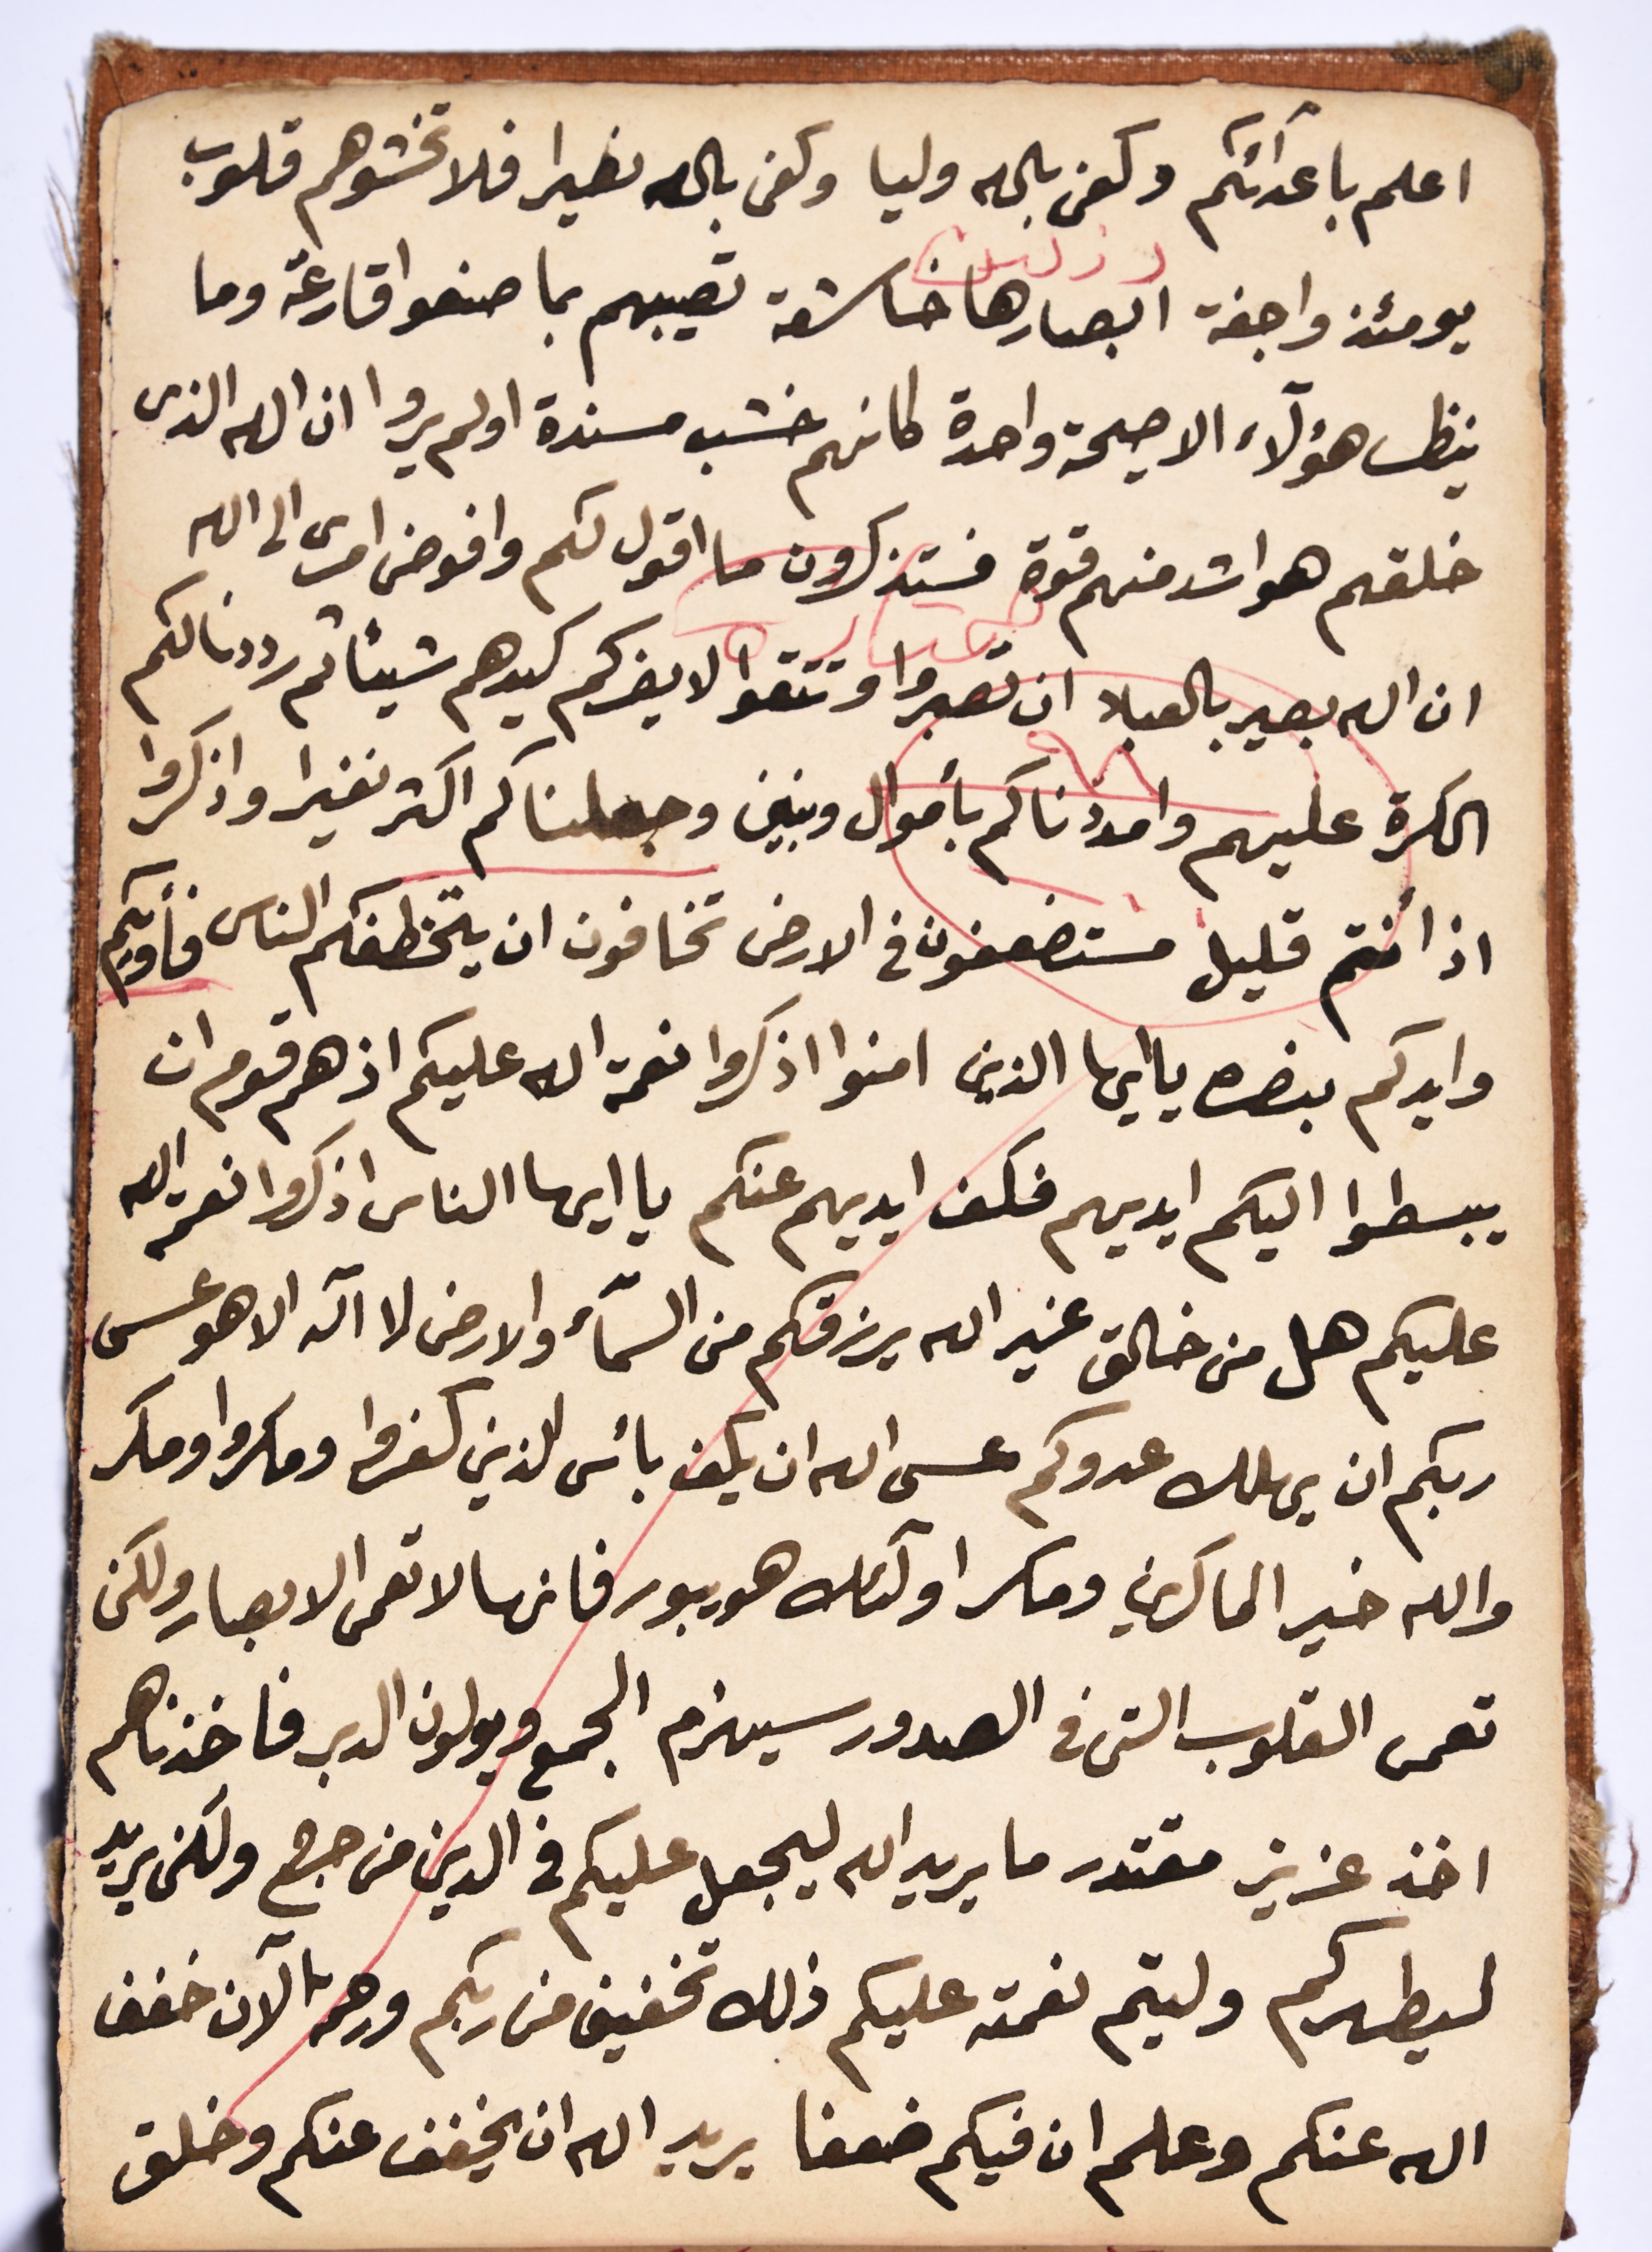 اعلم باعدآئكم وكفى بالله وليا وكفى بالله نصيرا فلا تخشوهم قلوب
يومئذ واجفة ابصارها خاشعة تصيبهم بما صنعوا قارعة وما
ينظر هؤلآء الا صيحة واحدة كانهم خشب مسندة اولم يروا ان الله الذى
خلقهم هو اشد منهم قوة فستذكرون ما اقول لكم وافوض امرى الى الله
ان الله بصير بالعباد ان تصبروا وتتقوا لا يضركم كيدهم شيئا ثم رددنا لكم
الكرة عليهم وامددناكم بأموال وبنين وجعلناكم اكثر نفيرا واذكروا
اذ أنتم قليل مستضعفون فى الارض تخافون ان يتخطفكم الناس فأويكم
وايدكم بنصره يا ايها الذين امنوا اذكروا نعمة الله عليكم اذ هم قوم ان
يبسطوا اليكم ايديهم فكف ايديهم عنكم يا ايها الناس اذكروا نعمة الله
عليكم هل من خالق غير الله يرزقكم من السمآء والارض لا اله الا هو عسى
ربكم ان يهلك عدوكم عسى الله ان يكف بأس الذين كفروا ومكروا ومكر
والله خير الماكرين ومكر اولئك هو يبور فانها لا تعمى الابصار ولكن
تعمى القلوب التى فى الصدور سيهزم الجمع ويولون الدبر فاخذناهم
اخذ عزيز مقتدر ما يريد الله ليجعل عليكم فى الدين من حرج ولكن يريد
ليطهركم وليتم نعمته عليكم ذلك تخفيف من ربكم ورحمة الآن خفف
الله عنكم وعلم ان فيكم ضعفا يريد الله ان يخفف عنكم وخلق